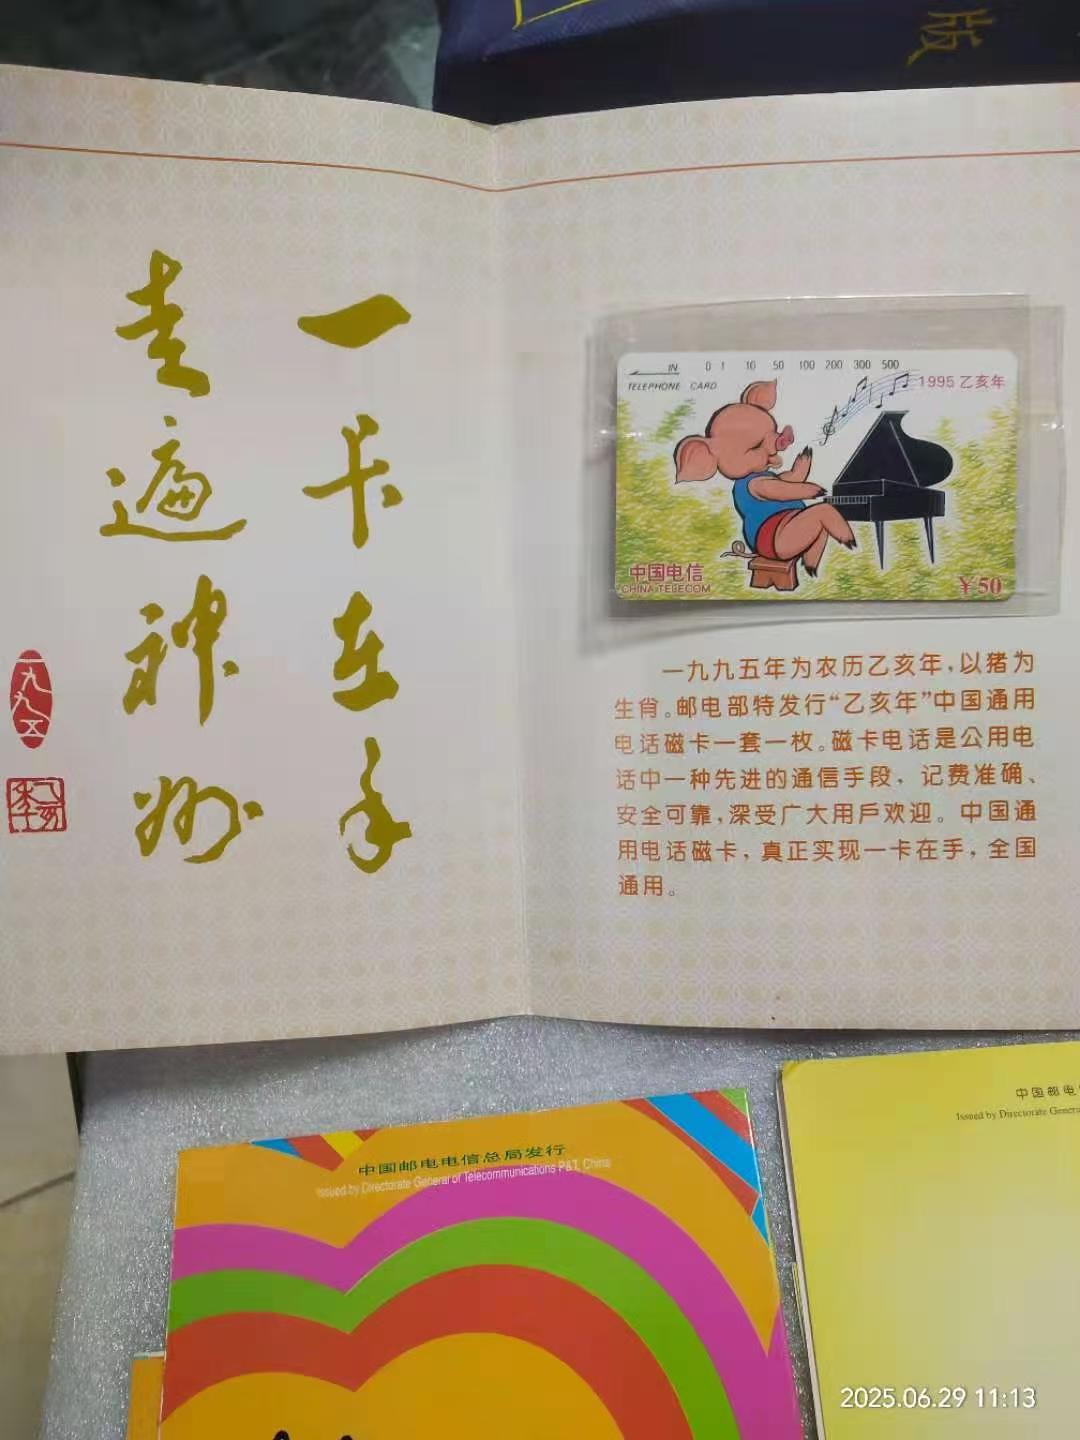 版
一卡在手
走遍神州
一九九五
乙亥年
IN 0 1 10 50 100 200 300 500
TELEPHONE CARD
1995 乙亥年
中国电信
CHINA TELECOM
￥50
一九九五年为农历乙亥年，以猪为
生肖。邮电部特发行“乙亥年”中国通用
电话磁卡一套一枚。磁卡电话是公用电
话中一种先进的通信手段，记费准确、
安全可靠，深受广大用戶欢迎。中国通
用电话磁卡，真正实现一卡在手，全国
通用。
中国邮电电信总局发行
Issued by Directorate General of Telecommunications P&T, China
中国邮电
Issued by Directorate Genera
2025.06.29 11:13